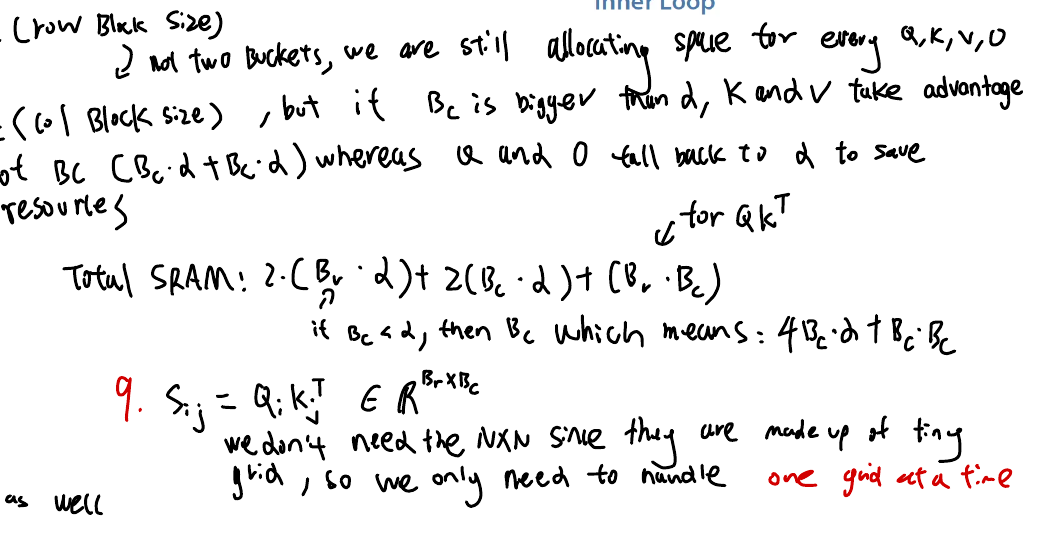 Inner Loop
(row Block Size)
not two buckets, we are still allocating space for every Q, K, V, O
(Col Block size) , but if Bc is bigger than d, K and V take advantage
of BC (Bc·d + Bc·d) whereas Q and O fall back to d to save
resources
for QK^T
Total SRAM: 2·(Br·d) + 2(Bc·d) + (Br·Bc)
if Bc < d, then Bc which means: 4Bc·d + Bc·Bc
9. Sij = Qi Kj^T ∈ R^Br×Bc
we don't need the N×N since they are made up of tiny
grid, so we only need to handle one grid at a time
as well